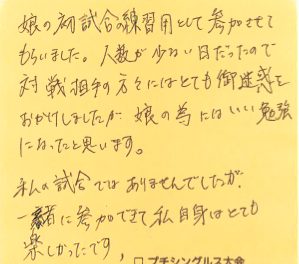 娘の初試合の練習用として参加させて
もらいました。人数が少ない日だったので
対戦相手の方々にはとても御迷惑を
おかけしましたが娘の為にはいい勉強
になったと思います。
私の試合ではありませんでしたが、
一緒に参加できて私自身はとても
楽しかったです，
□ プチシングルス大会